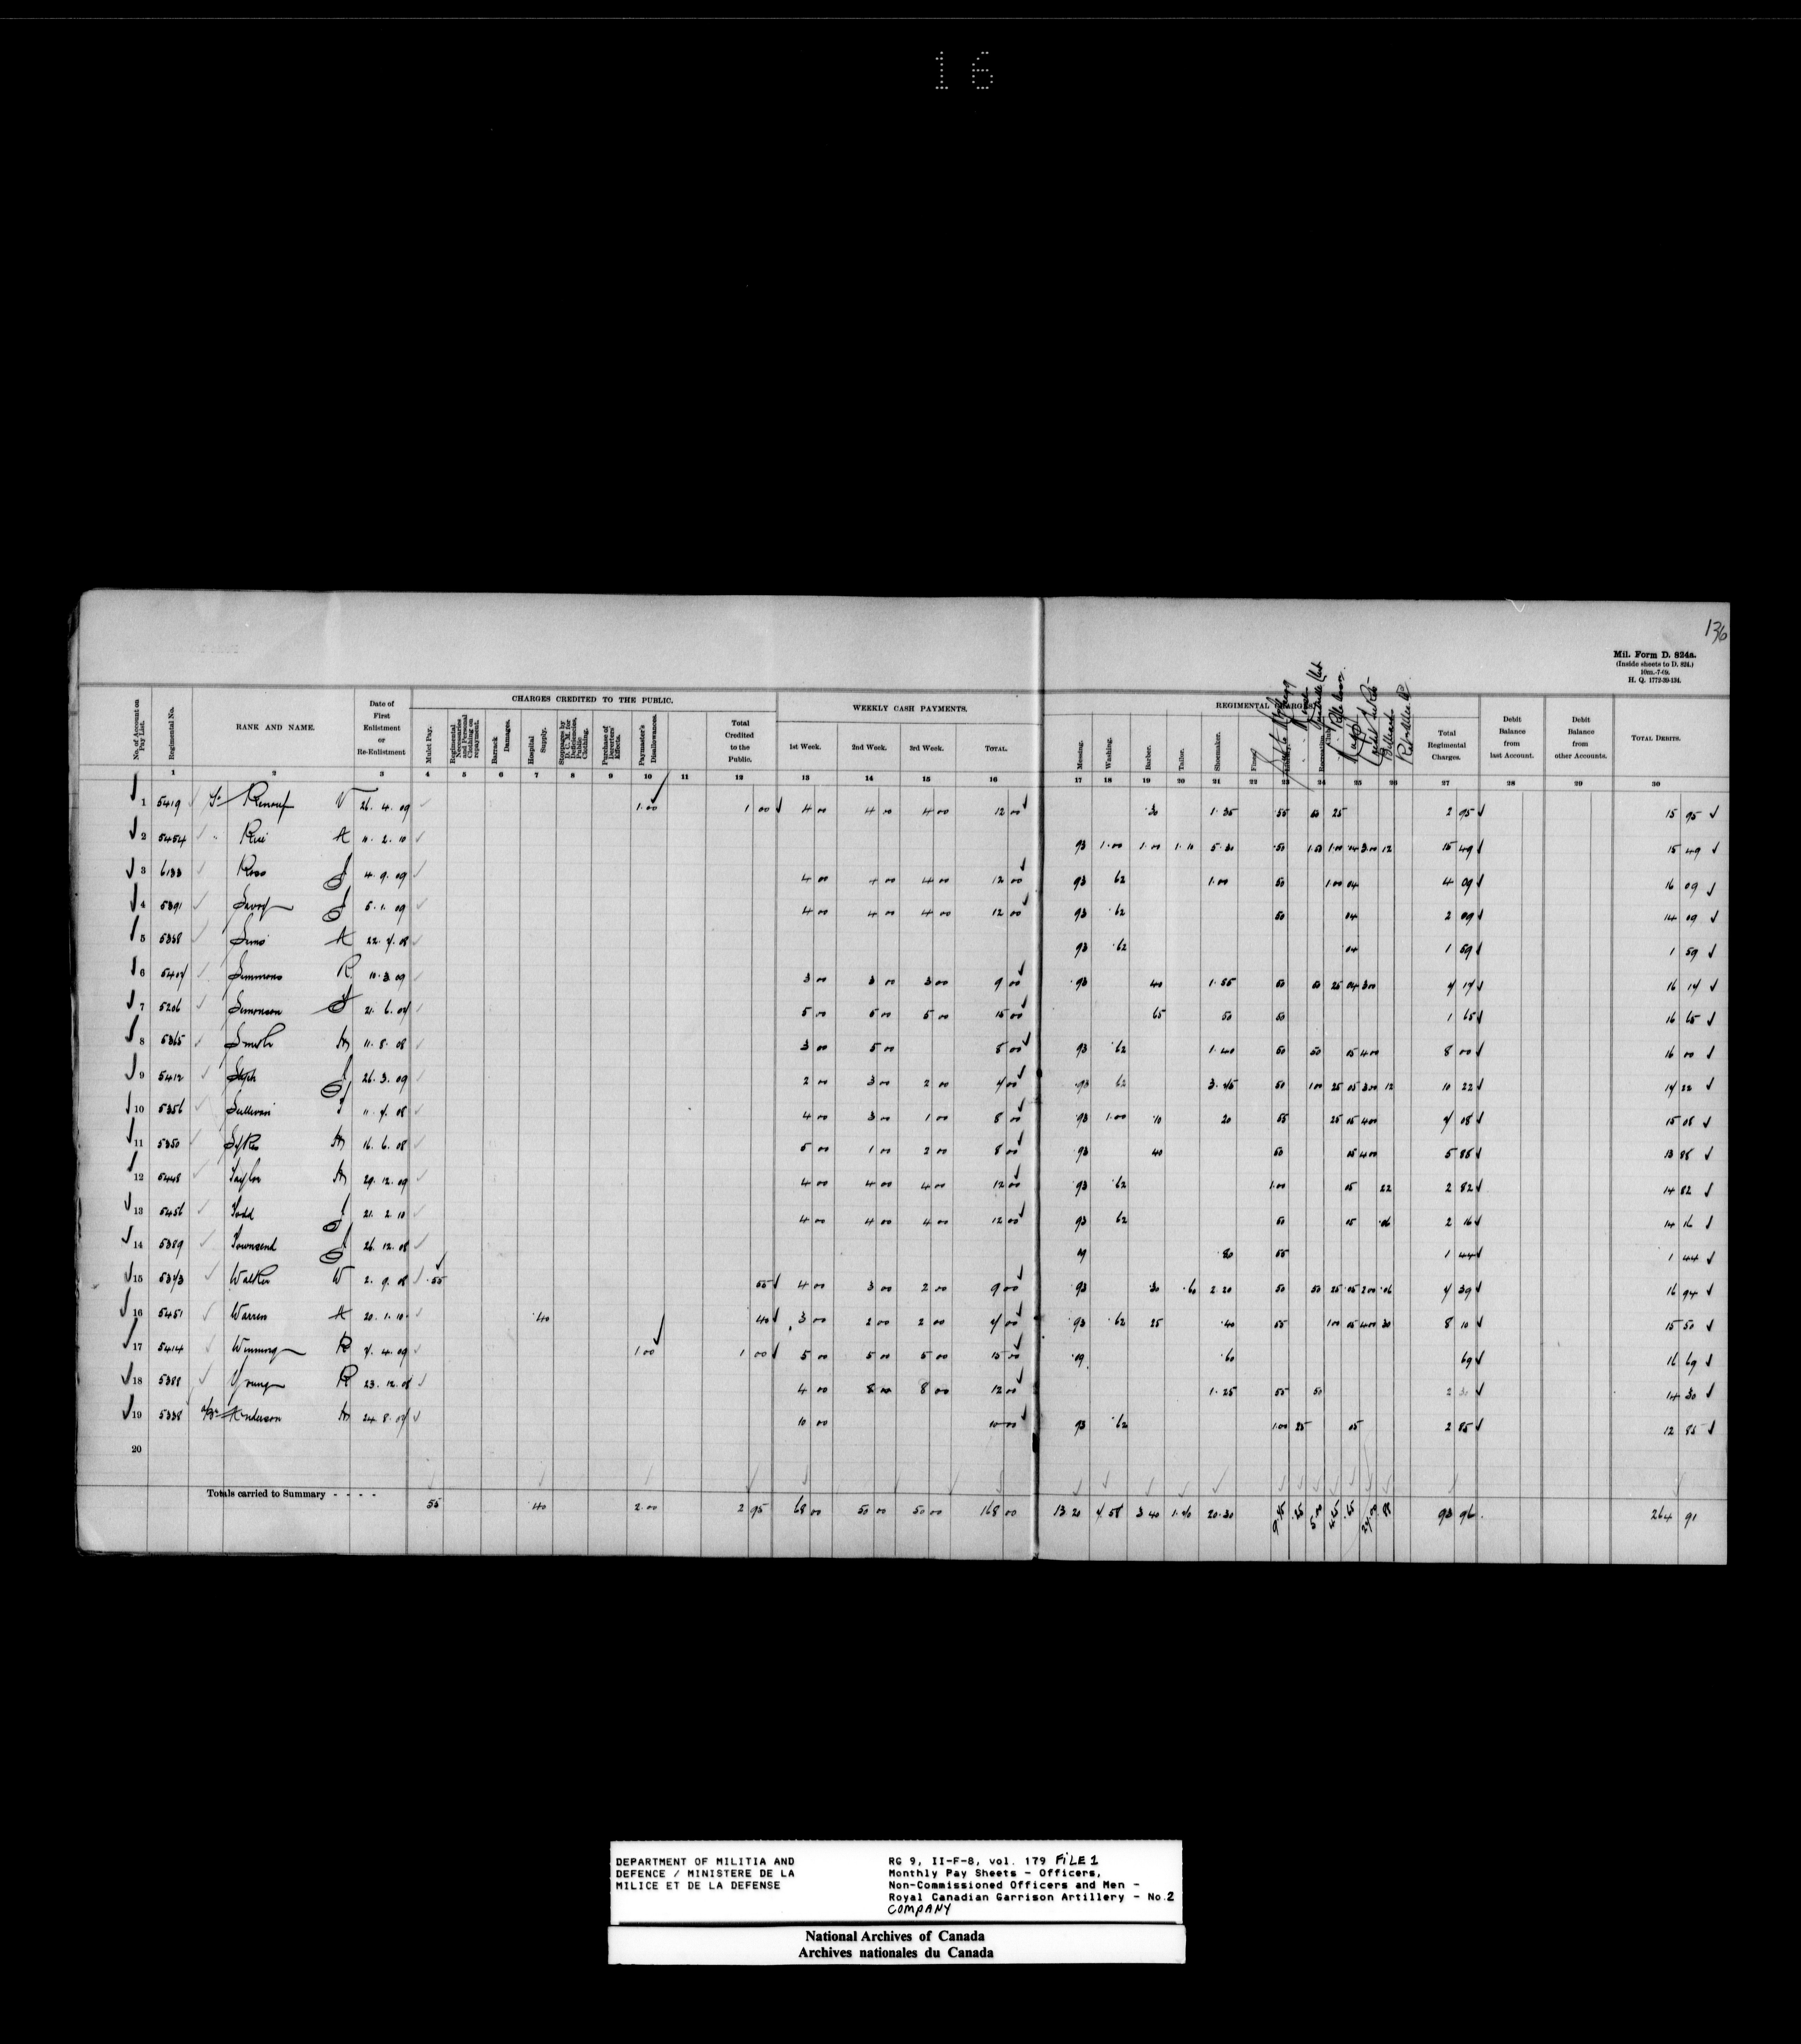 16
136
Mil. Form D. 824a.
(Inside sheets to D. 824.)
10m.-7-09.
H. Q. 1772-39-134.
CHARGES CREDITED TO THE PUBLIC.
WEEKLY CASH PAYMENTS.
REGIMENTAL CHARGES
No. of Account on Pay List.
Regimental No.
RANK AND NAME.
Date of First Enlistment or Re-Enlistment
Mulct Pay.
Regimental Necessaries and Personal Clothing on repayment.
Barrack Damages.
Hospital Supply.
Stoppages by R. C. M. for Deficiencies, Public Clothing.
Purchase of Deserters' Effects.
Paymaster's Disallowances.
Total Credited to the Public.
1st Week.
2nd Week.
3rd Week.
TOTAL.
Messing.
Washing.
Barber.
Tailor.
Shoemaker.
Fines.
Library.
Recreation Club.
Total Regimental Charges.
Debit Balance from last Account.
Debit Balance from other Accounts.
TOTAL DEBITS.
1 2 3 4 5 6 7 8 9 10 11 12 13 14 15 16 17 18 19 20 21 22 23 24 25 26 27 28 29 30
1 5419 Gr Renouf V 26. 4. 09 1.00 1 00 4 00 4 00 4 00 12 00 .30 1.35 .55 50 25 2 95 15 95
2 5454 " A 11. 2. 10 93 1.00 1.00 1.10 5.30 .50 1.50 1.00 .04 3.00 12 15 49 15 49
3 6133 Ross J 4. 9. 09 4 00 4 00 4 00 12 00 93 62 1.00 50 1.00 04 4 09 16 09
4 5391 Savoy J 5. 1. 09 4 00 4 00 4 00 12 00 93 .62 50 04 2 09 14 09
5 5338 Sims A 22. 7. 08 93 .62 04 1 59 1 59
6 5407 Simmons R 10. 3. 09 3 00 3 00 3 00 9 00 .93 40 1.55 50 50 25 04 3.00 7 17 16 17
7 5206 Simonson 21. 6. 07 5 00 5 00 5 00 15 00 65 50 50 1 65 16 65
8 5365 Smith 11. 8. 08 3 00 5 00 8 00 93 .62 1.40 50 50 05 4.00 8 00 16 00
9 5412 J 26. 3. 09 2 00 3 00 2 00 7 00 .93 62 3.75 50 1.00 25 05 3.00 12 10 22 17 22
10 5356 Sullivan J 11. 7. 08 4 00 3 00 1 00 8 00 .93 1.00 .10 20 55 25 05 4.00 7 08 15 08
11 5350 Sykes 16. 6. 08 5 00 1 00 2 00 8 00 .93 40 50 05 4.00 5 88 13 88
12 5448 Taylor 29. 12. 09 4 00 4 00 4 00 12 00 .93 .62 1.00 05 22 2 82 14 82
13 5456 Todd J 21. 2. 10 4 00 4 00 4 00 12 00 93 62 50 05 .06 2 16 14 16
14 5389 Townsend J 26. 12. 08 .09 .80 55 1 44 1 44
15 5373 Walker W 2. 9. 08 .55 55 4 00 3 00 2 00 9 00 .93 .30 .60 2 20 50 50 25 .05 2.00 .06 7 39 16 94
16 5451 Warren A 20. 1. 10 .40 40 3 00 2 00 2 00 7 00 .93 .62 25 .40 55 1.00 05 4.00 30 8 10 15 50
17 5414 Winning R 7. 4. 09 1.00 1 00 5 00 5 00 5 00 15 00 .09 .60 69 16 69
18 5388 Young R 23. 12. 08 4 00 8 00 12 00 1.25 55 50 2 30 14 30
19 5338 Anderson 24. 8. 07 10 00 10 00 93 .62 1.00 25 05 2 85 12 85
20
Totals carried to Summary - - - - 55 .40 2.00 2 95 68 00 50 00 50 00 168 00 13.20 7 58 3 40 1.70 20.30 93 96 264 91
DEPARTMENT OF MILITIA AND
DEFENCE / MINISTERE DE LA
MILICE ET DE LA DEFENSE
RG 9, II-F-8, vol. 179 FILE 1
Monthly Pay Sheets - Officers,
Non-Commissioned Officers and Men -
Royal Canadian Garrison Artillery - No. 2
COMPANY
National Archives of Canada
Archives nationales du Canada